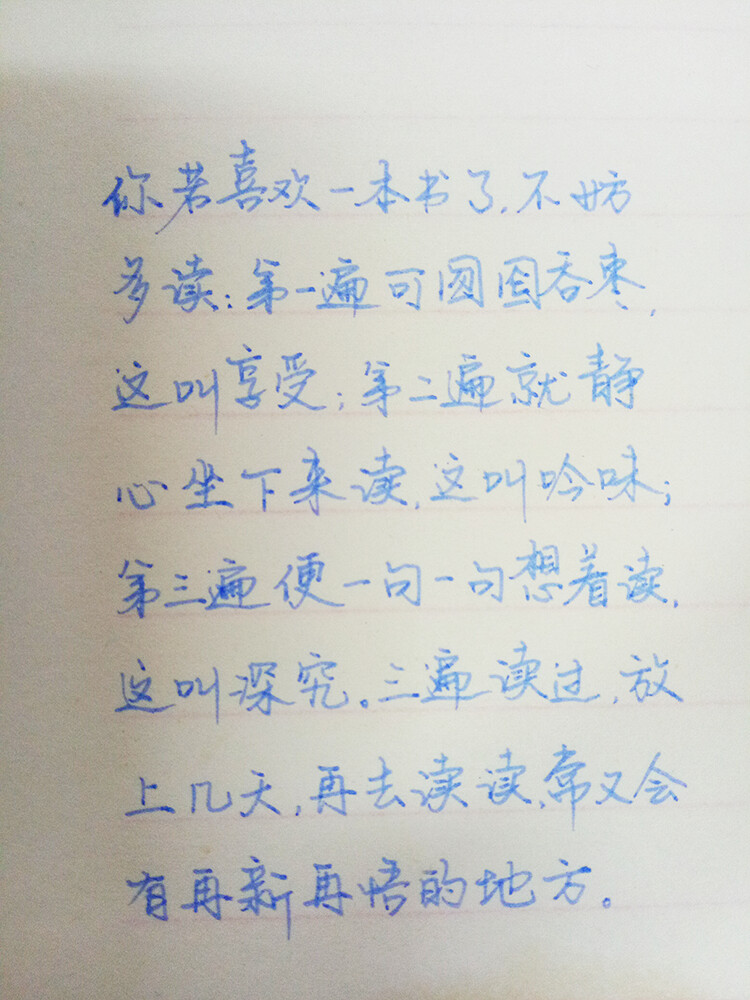 你若喜欢一本书了，不妨
多读：第一遍可囫囵吞枣，
这叫享受；第二遍就静
心坐下来读，这叫吟味；
第三遍便一句一句想着读，
这叫深究。三遍读过，放
上几天，再去读读，常又会
有再新再悟的地方。